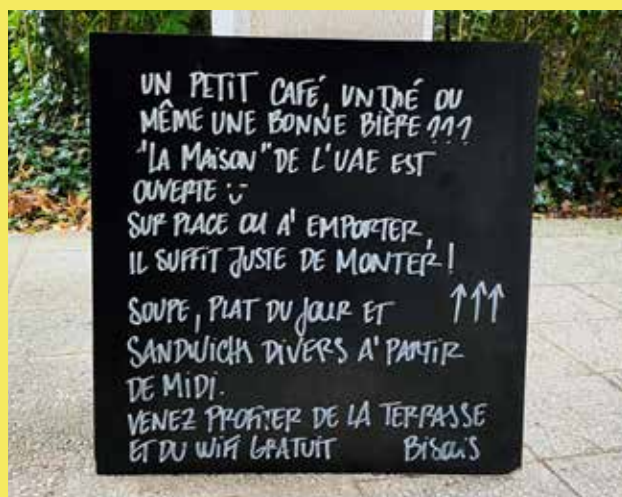 UN PETIT CAFÉ, UN THÉ OU
MÊME UNE BONNE BIÈRE ???
"LA MAISON" DE L'UAE EST
OUVERTE
SUR PLACE OU A' EMPORTER,
IL SUFFIT JUSTE DE MONTER !
SOUPE, PLAT DU JOUR ET ↑↑↑
SANDWICH DIVERS A' PARTIR
DE MIDI.
VENEZ PROFITER DE LA TERRASSE
ET DU WIFI GRATUIT Bisous